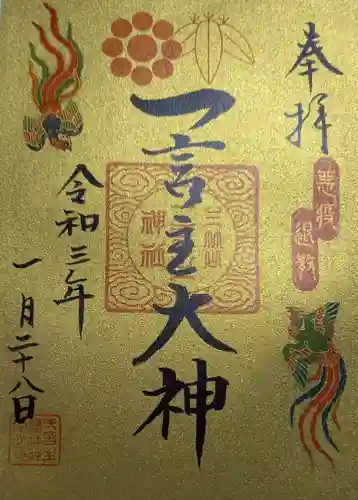 奉拝
悪疫
退散
一言主大神
三光
神社
令和三年
一月二十八日